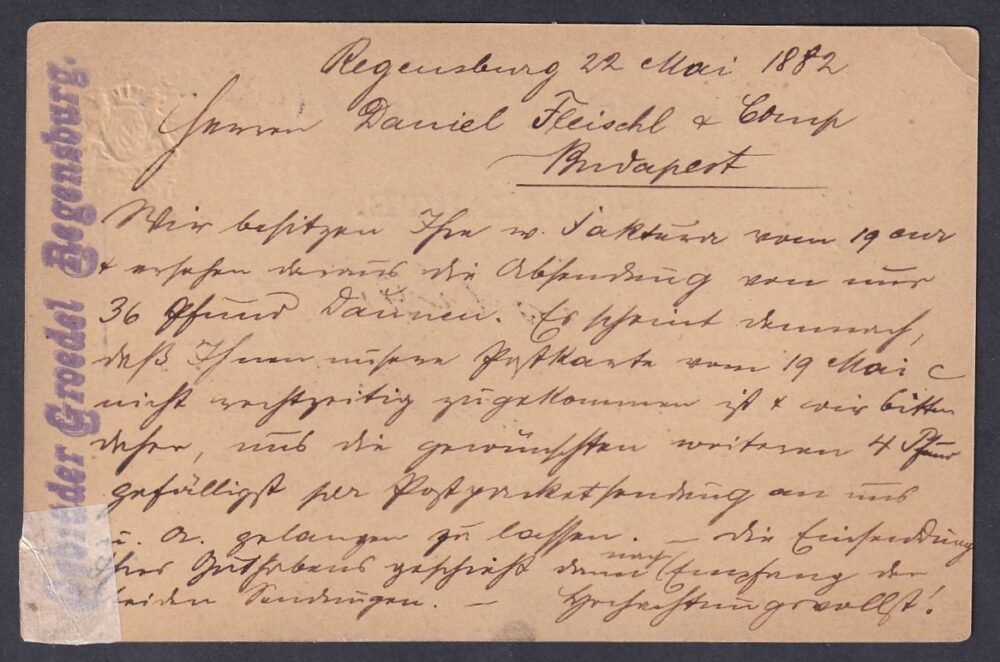 Regensburg 22 Mai 1882
Herren Daniel Fleischl & Comp
Budapest
Wir besitzen Ihre w. Faktura vom 19 cur
& ersehen daraus die Absendung von nur
36 Pfund Daunen. Es scheint demnach,
daß Ihnen unsere Postkarte vom 19 Mai c
nicht rechtzeitig zugekommen ist & wir bitten
daher, uns die gewünschten weiteren 4 Pfund
gefälligst per Postpacketsendung an uns
gelangen zu lassen. – Die Einsendung
Guthabens geschieht dann nach Empfang der
beiden Sendungen. – Hochachtungsvollst!
Brüder Groedel Regensburg.